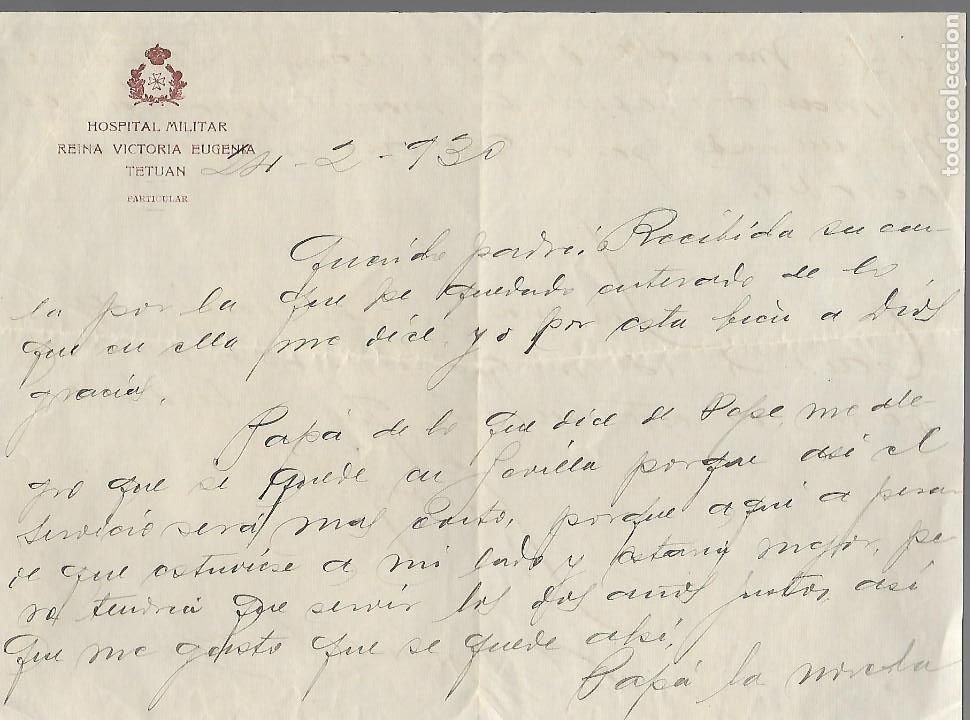 HOSPITAL MILITAR
REINA VICTORIA EUGENIA
TETUAN
PARTICULAR
24-2-930
Querido padre: Recibida su car-
ta por la que he quedado enterado de lo
que en ella me dice, yo por esta bien a Dios
gracias.
Papá de lo que dice de Pepe, me ale-
gro que se quede en Sevilla porque asi el
servicio será mas corto, porque aqui a pesar
de que estuviese a mi lado y estaria mejor, pe
ro tendria que servir los dos años justos, asi
que me gusto que se quede ahi.
Papá la
todocoleccion